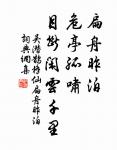 扁舟昨泊
危亭孤啸
目断闲云千里
吴潜鹊桥仙扁舟昨泊
词典网集